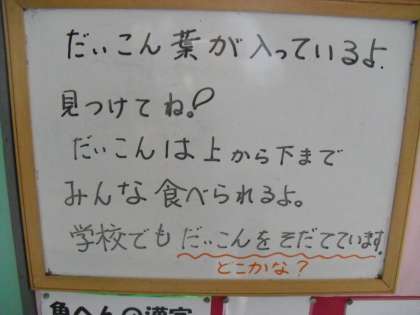 だいこん葉が入っているよ.
見つけてね。
だいこんは上から下まで
みんな食べられるよ。
学校でもだいこんをそだてています。
どこかな?
魚へんの漢字